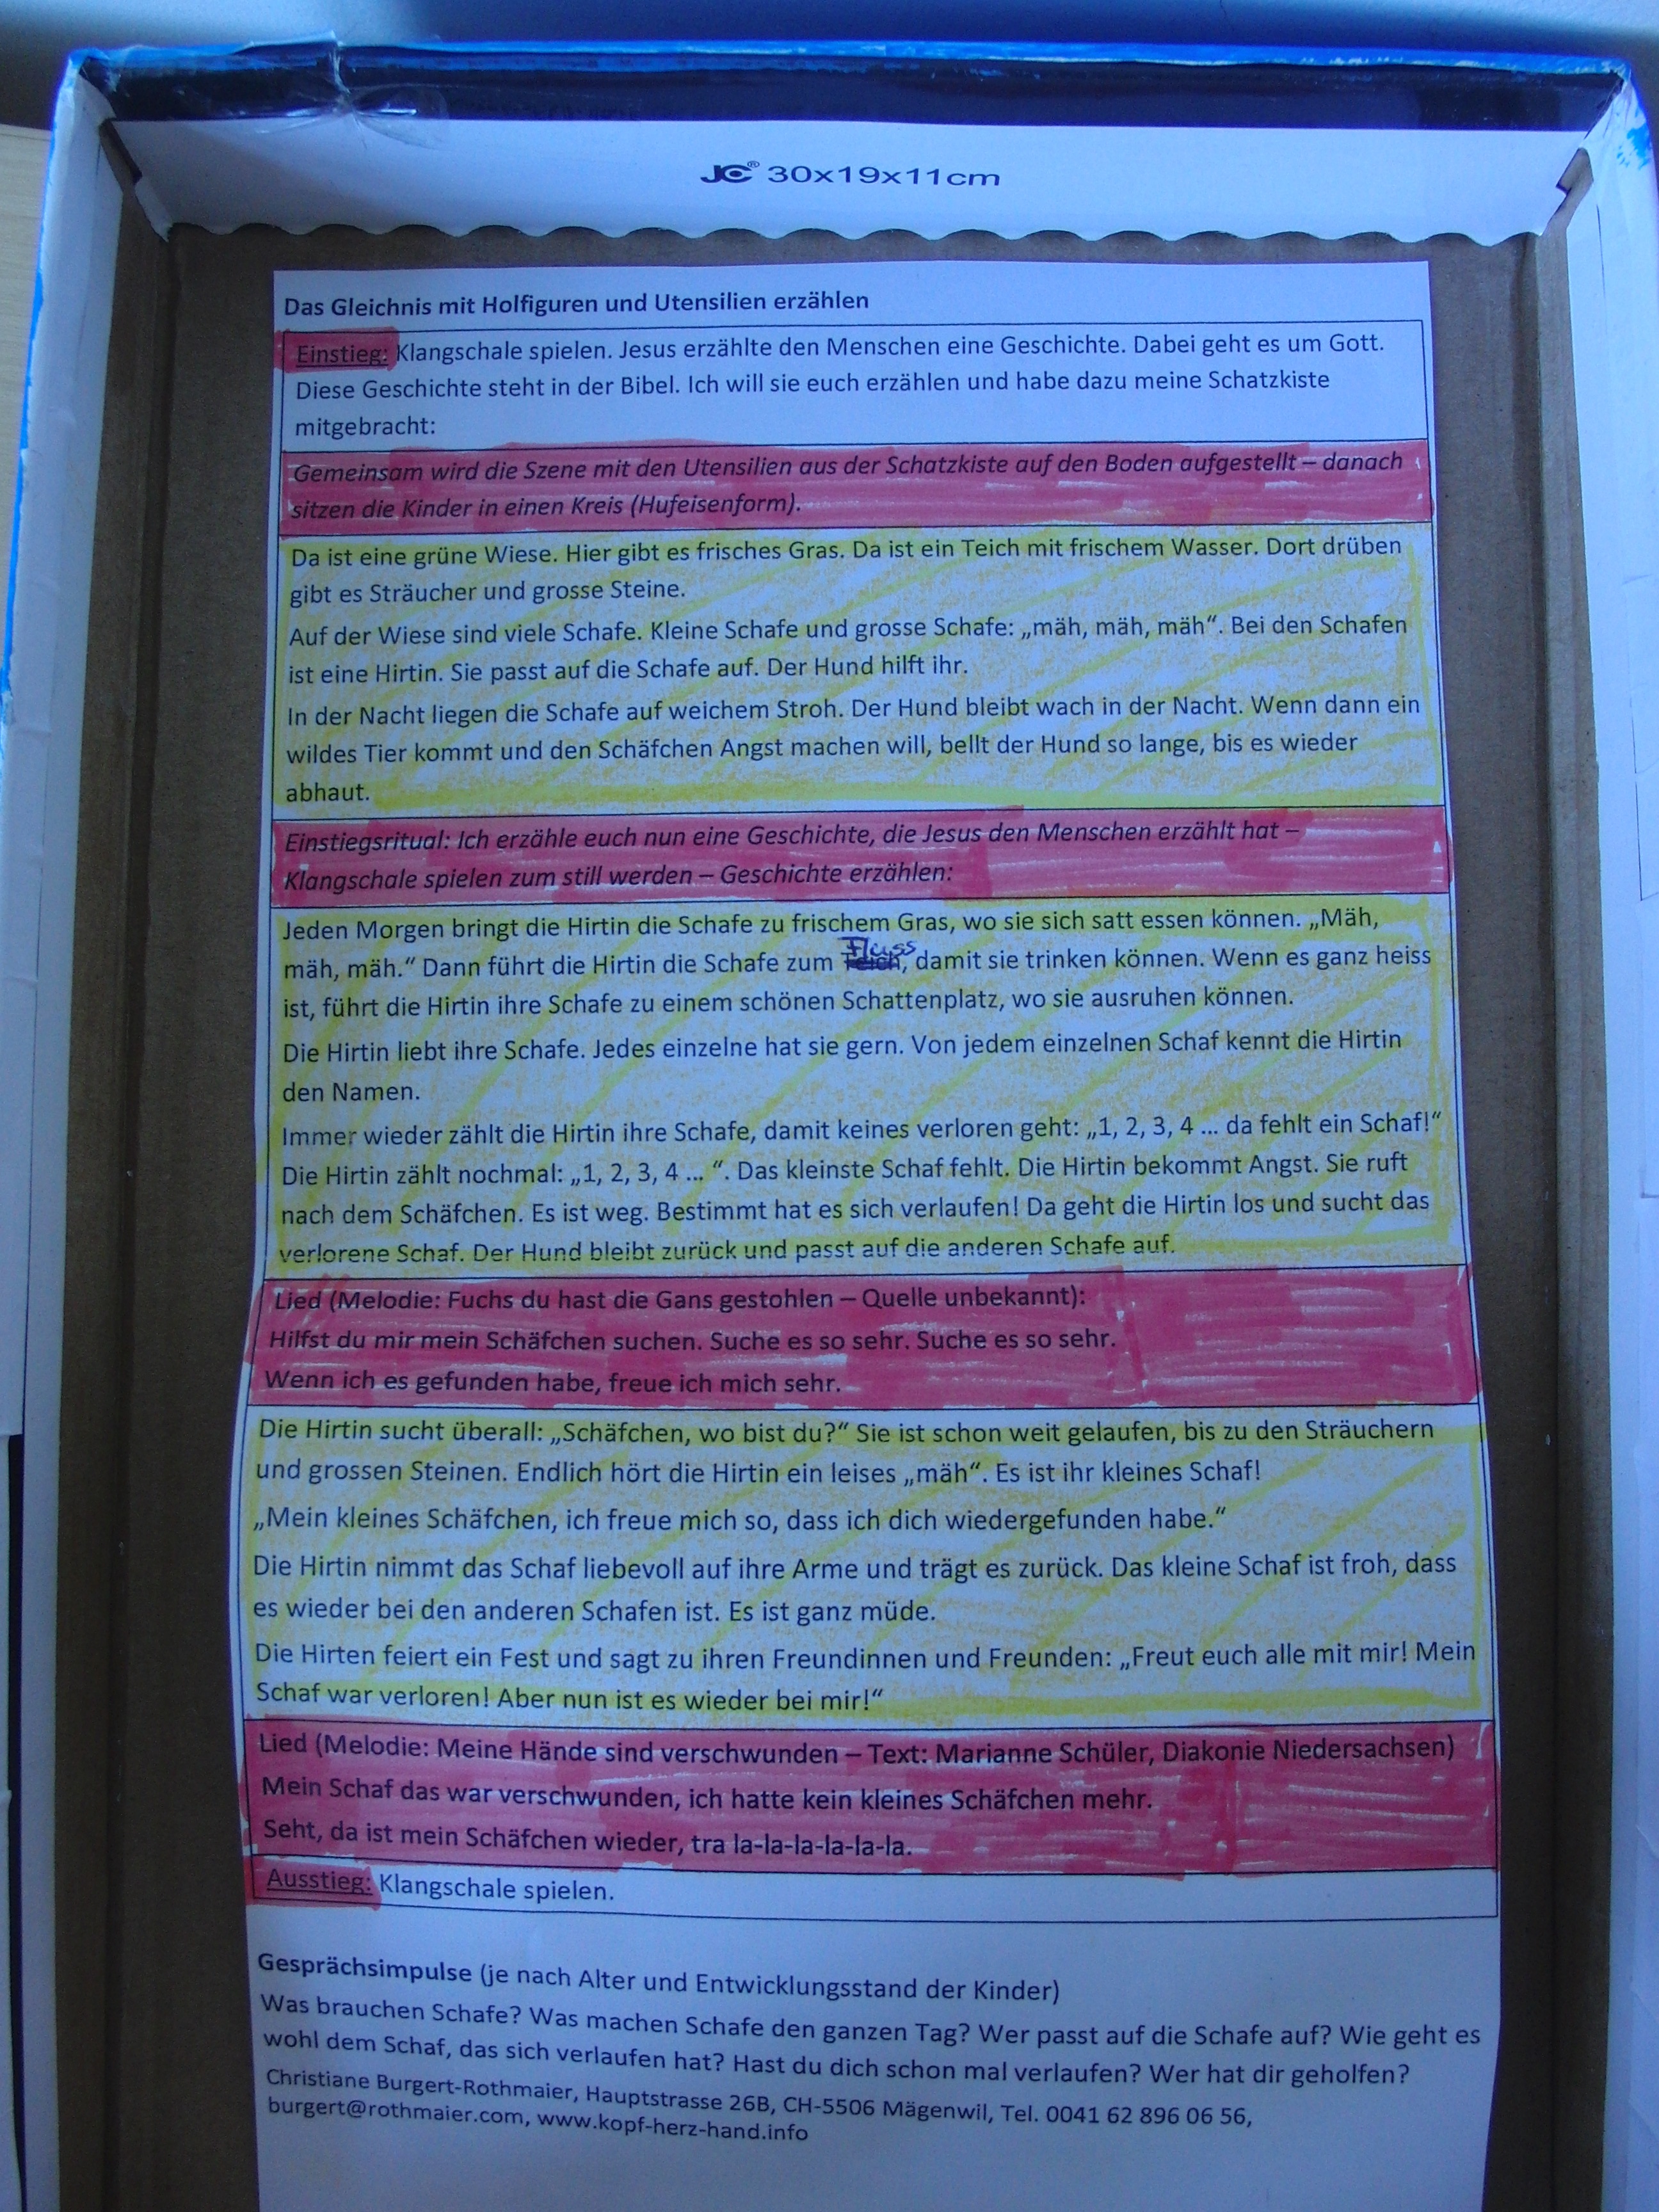 JC® 30x19x11cm
Das Gleichnis mit Holfiguren und Utensilien erzählen
Einstieg: Klangschale spielen. Jesus erzählte den Menschen eine Geschichte. Dabei geht es um Gott.
Diese Geschichte steht in der Bibel. Ich will sie euch erzählen und habe dazu meine Schatzkiste
mitgebracht:
Gemeinsam wird die Szene mit den Utensilien aus der Schatzkiste auf den Boden aufgestellt – danach
sitzen die Kinder in einen Kreis (Hufeisenform).
Da ist eine grüne Wiese. Hier gibt es frisches Gras. Da ist ein Teich mit frischem Wasser. Dort drüben
gibt es Sträucher und grosse Steine.
Auf der Wiese sind viele Schafe. Kleine Schafe und grosse Schafe: „mäh, mäh, mäh“. Bei den Schafen
ist eine Hirtin. Sie passt auf die Schafe auf. Der Hund hilft ihr.
In der Nacht liegen die Schafe auf weichem Stroh. Der Hund bleibt wach in der Nacht. Wenn dann ein
wildes Tier kommt und den Schäfchen Angst machen will, bellt der Hund so lange, bis es wieder
abhaut.
Einstiegsritual: Ich erzähle euch nun eine Geschichte, die Jesus den Menschen erzählt hat –
Klangschale spielen zum still werden – Geschichte erzählen:
Jeden Morgen bringt die Hirtin die Schafe zu frischem Gras, wo sie sich satt essen können. „Mäh,
Fluss
mäh, mäh.“ Dann führt die Hirtin die Schafe zum Teich, damit sie trinken können. Wenn es ganz heiss
ist, führt die Hirtin ihre Schafe zu einem schönen Schattenplatz, wo sie ausruhen können.
Die Hirtin liebt ihre Schafe. Jedes einzelne hat sie gern. Von jedem einzelnen Schaf kennt die Hirtin
den Namen.
Immer wieder zählt die Hirtin ihre Schafe, damit keines verloren geht: „1, 2, 3, 4 ... da fehlt ein Schaf!“
Die Hirtin zählt nochmal: „1, 2, 3, 4 ... “. Das kleinste Schaf fehlt. Die Hirtin bekommt Angst. Sie ruft
nach dem Schäfchen. Es ist weg. Bestimmt hat es sich verlaufen! Da geht die Hirtin los und sucht das
verlorene Schaf. Der Hund bleibt zurück und passt auf die anderen Schafe auf.
Lied (Melodie: Fuchs du hast die Gans gestohlen – Quelle unbekannt):
Hilfst du mir mein Schäfchen suchen. Suche es so sehr. Suche es so sehr.
Wenn ich es gefunden habe, freue ich mich sehr.
Die Hirtin sucht überall: „Schäfchen, wo bist du?“ Sie ist schon weit gelaufen, bis zu den Sträuchern
und grossen Steinen. Endlich hört die Hirtin ein leises „mäh“. Es ist ihr kleines Schaf!
„Mein kleines Schäfchen, ich freue mich so, dass ich dich wiedergefunden habe.“
Die Hirtin nimmt das Schaf liebevoll auf ihre Arme und trägt es zurück. Das kleine Schaf ist froh, dass
es wieder bei den anderen Schafen ist. Es ist ganz müde.
Die Hirten feiert ein Fest und sagt zu ihren Freundinnen und Freunden: „Freut euch alle mit mir! Mein
Schaf war verloren! Aber nun ist es wieder bei mir!“
Lied (Melodie: Meine Hände sind verschwunden – Text: Marianne Schüler, Diakonie Niedersachsen)
Mein Schaf das war verschwunden, ich hatte kein kleines Schäfchen mehr.
Seht, da ist mein Schäfchen wieder, tra la-la-la-la-la-la.
Ausstieg: Klangschale spielen.
Gesprächsimpulse (je nach Alter und Entwicklungsstand der Kinder)
Was brauchen Schafe? Was machen Schafe den ganzen Tag? Wer passt auf die Schafe auf? Wie geht es
wohl dem Schaf, das sich verlaufen hat? Hast du dich schon mal verlaufen? Wer hat dir geholfen?
Christiane Burgert-Rothmaier, Hauptstrasse 26B, CH-5506 Mägenwil, Tel. 0041 62 896 06 56,
burgert@rothmaier.com, www.kopf-herz-hand.info